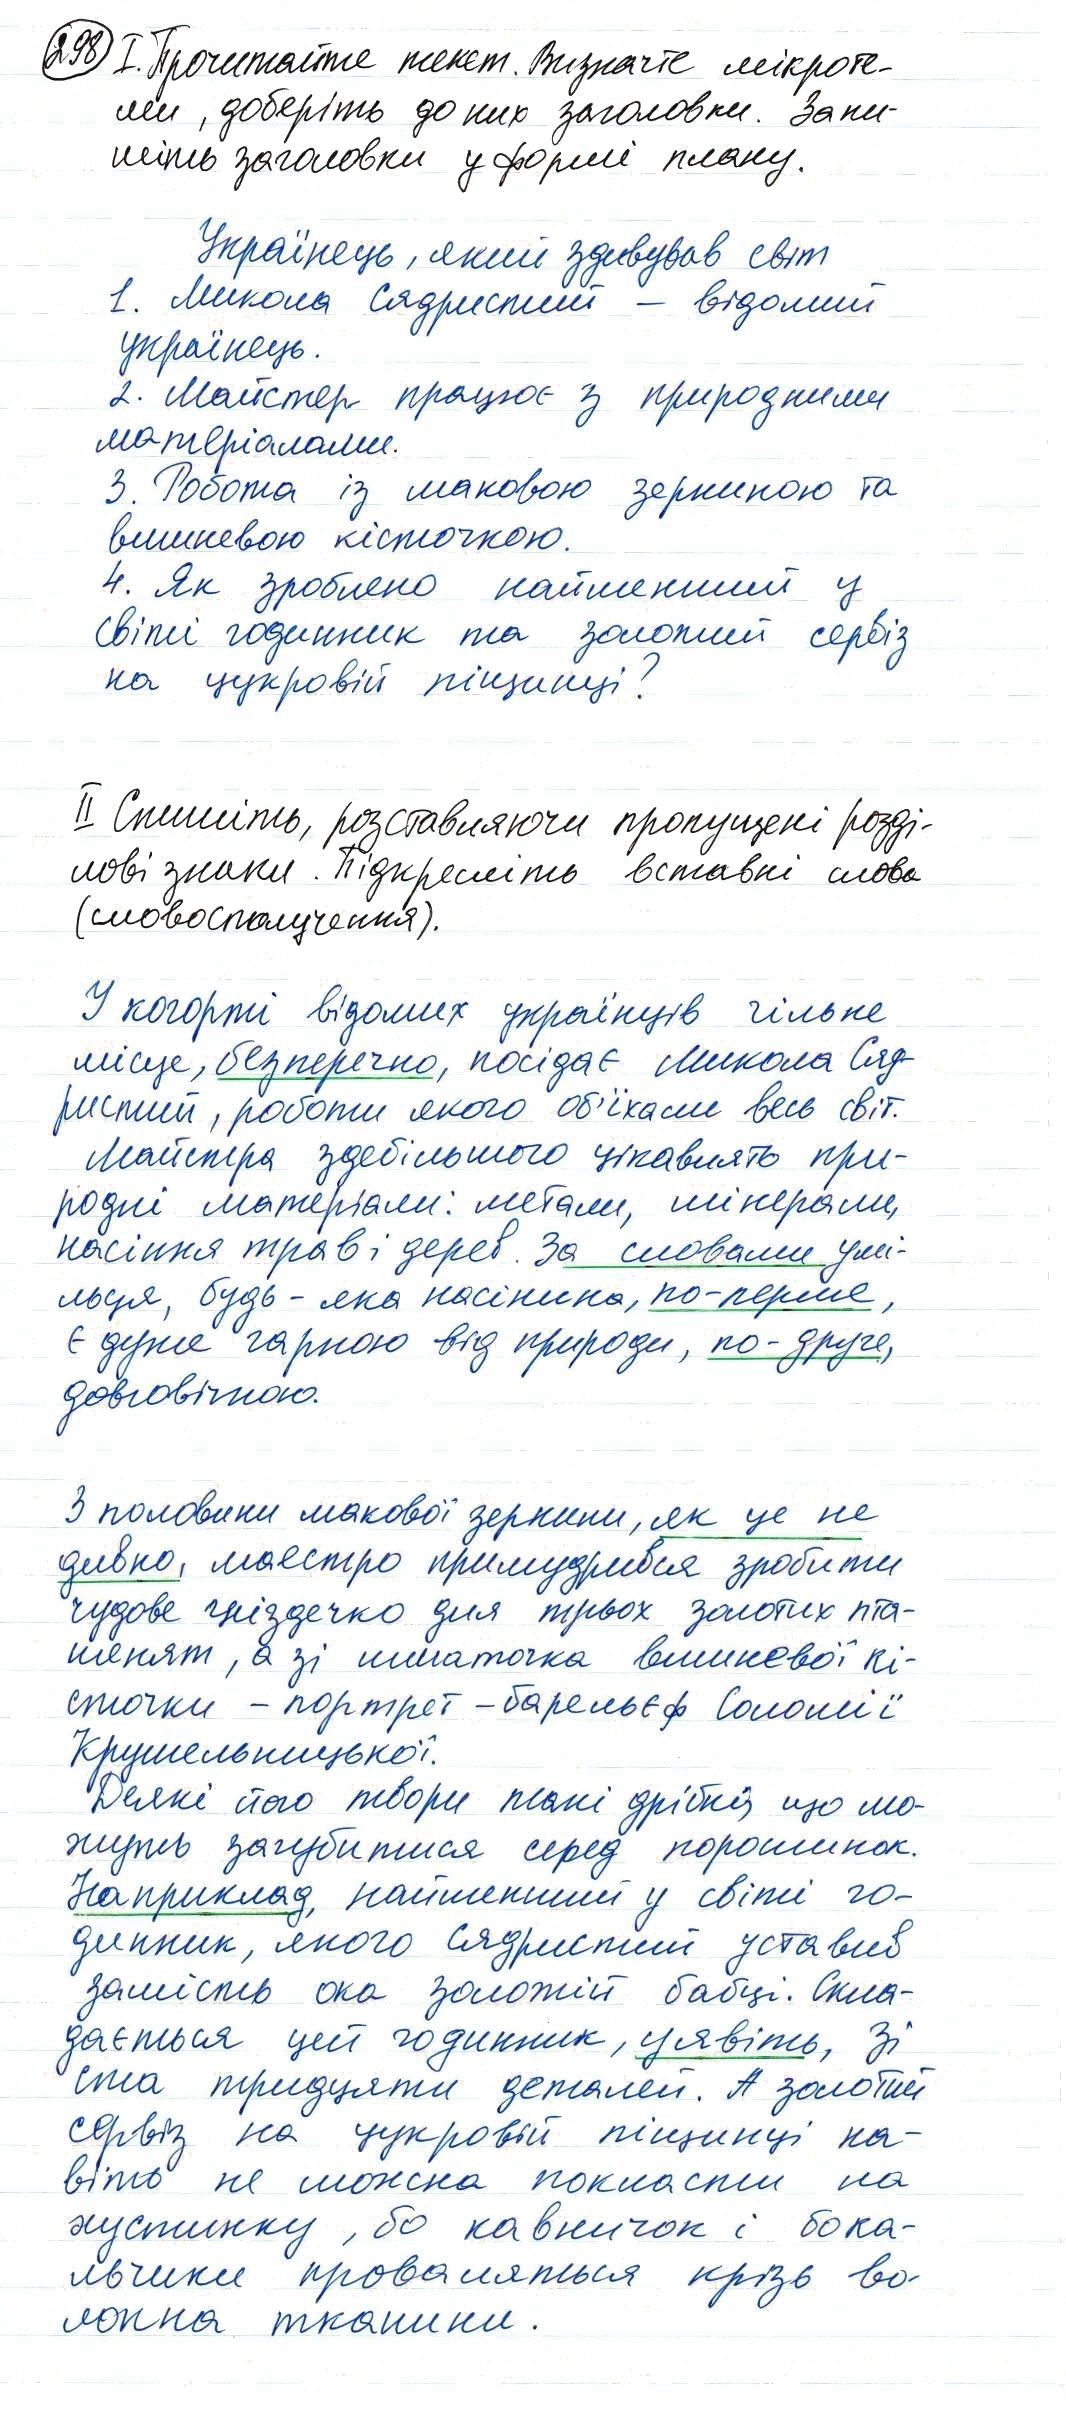 298 I. Прочитайте текст. Визначте мікроте-
ми, доберіть до них заголовки. Запи-
шіть заголовки у формі плану.
Українець, який здивував світ
1. Микола Сядристий – відомий
українець.
2. Майстер працює з природними
матеріалами.
3. Робота із маковою зерниною та
вишневою кісточкою.
4. Як зроблено найменший у
світі годинник та золотий сервіз
на цукровій піщинці?
II Спишіть, розставляючи пропущені розді-
лові знаки. Підкресліть вставні слова
(словосполучення).
У когорті відомих українців чільне
місце, безперечно, посідає Микола Сяд-
ристий, роботи якого об'їхали весь світ.
Майстра здебільшого цікавлять при-
родні матеріали: метали, мінерали,
насіння трав і дерев. За словами умі-
льця, будь-яка насінина, по-перше,
є дуже гарною від природи, по-друге,
довговічною.
З половини макової зернини, як це не
дивно, маестро примудрився зробити
чудове гніздечко для трьох золотих пта-
шенят, а зі шматочка вишневої кі-
сточки – портрет-барельєф Соломії
Крушельницької.
Деякі його твори такі дрібні, що мо-
жуть загубитися серед порошинок.
Наприклад, найменший у світі го-
динник, якого Сядристий уставив
замість ока золотій бабці. Скла-
дається цей годинник, уявіть, зі
ста тридцяти деталей. А золотий
сервіз на цукровій піщинці на-
віть не можна покласти на
хустинку, бо кавничок і бока-
льчики проваляться крізь во-
локна тканини.